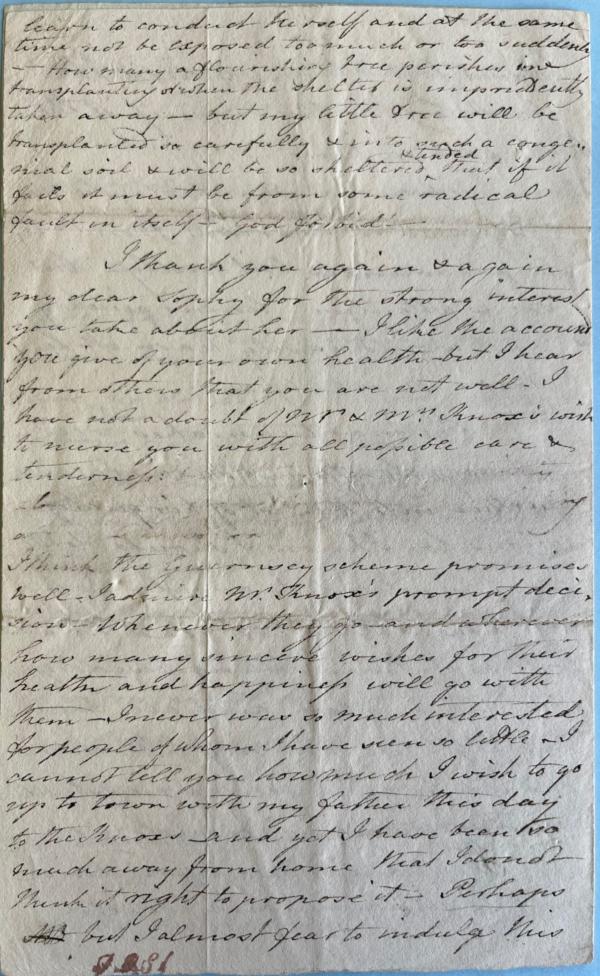 learn to conduct herself and at the same
time not be exposed too much or too suddenly
– How many a flourishing tree perishes in
transplanting or when the shelter is imprudently
taken away – but my little tree will be
transplanted so carefully & into such a conge-
nial soil & will be so sheltered & tended that if it
fails it must be from some radical
fault in itself – God forbid! –
I thank you again & again
my dear Sophy for the strong interest
you take about her – I like the account
you give of your own health but I hear
from others that you are not well – I
have not a doubt of Mr & Mrs Knox's wish
to nurse you with all possible care &
tenderness:
I think the Guernsey scheme promises
well – I admire Mr. Knox's prompt deci-
sion – Whenever they go and wherever
how many sincere wishes for their
health and happiness will go with
them – I never was so much interested
for people of whom I have seen so little – I
cannot tell you how much I wish to go
up to town with my father this day
to the Knoxs – and yet I have been so
much away from home that I do not
think it right to propose it – Perhaps
but I almost fear to indulge this